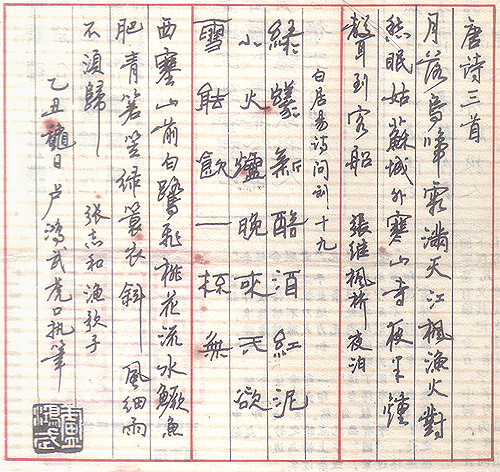 唐诗三首
月落烏啼霜滿天江楓漁火對
愁眠姑蘇城外寒山寺夜半鐘
聲到客船 張继楓桥夜泊
白居易诗问刘十九
綠蟻新醅酒紅泥
小火爐晚來天欲
雪能飲一杯無
西塞山前白鷺飛桃花流水鱖魚
肥青箬笠绿蓑衣斜風细雨
不須歸 張志和漁歌子
乙丑日卢鴻武虎口执筆
盧鴻武